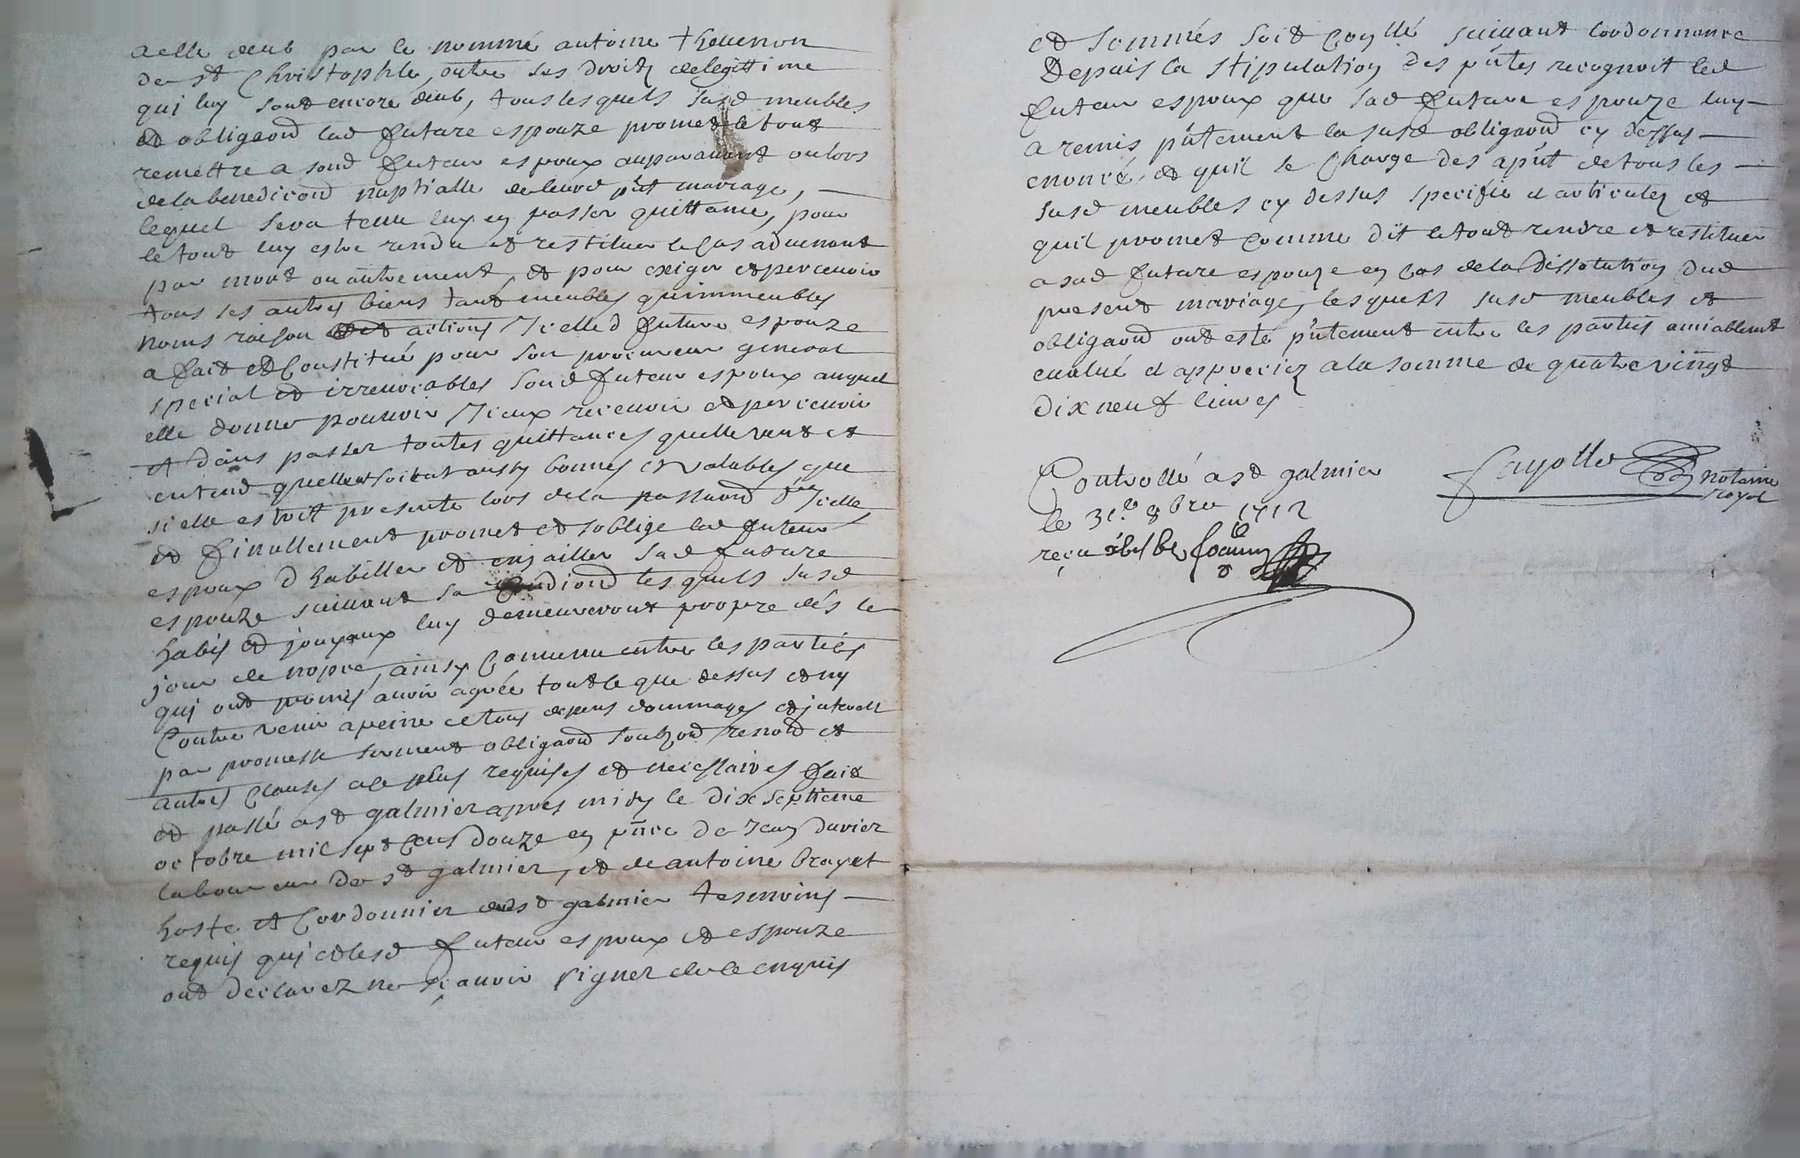 a elle deub par le nommé antoine thevenon
de st Christophle, outre ses droitz de legittime
qui luy sont encore deub, tous lesquels susd meubles
et obligaond lad future espouze promet le tout
remettre a sond futeur espoux auparauant ou lors
de la benediciond nuptialle de leurd pnt mariage,
lequel sera tenu luy en passer quittance, pour
le tout luy estre rendu et restituer le cas aduenant
par mort ou autrement, et pour exiger et perceuoir
tous ses autres biens tant meubles qu immeubles
noms raison et actions Icelled future espouze
a fait et Constitué pour son procureur general
special et irreuocables sond futeur espoux auquel
elle donne pouuoir Iceux receuoir et perceuoir
et d'eus passer toutes quittances quelle veut et
entend quelles soient aussy bonnes et valables que
si elle estoit presente lors de la passaond d'Icelle
et finallement promet et s'oblige led futeur
espoux d habiller et enjailler sad future
espouze suiuant sa Condiond lesquels susd
habis et joyaux luy demeureront propre dés le
jour de nopce, ainsy Conuenu entre les parties
qui ont promis auoir agréé tout le que dessus et ny
Contreuenir a peine de tous depens dommages et interetz
par promesse serment obligaond soubzond renond et
autres Clauses de plus requises et necessaires fait
et passé a st galmier apres midy le dix septieme
octobre mil sept cens douze en pnce de Jean Duvier
laboureur de st galmier, et de antoine brayet
hoste et Cordonnier dud st galmier tesmoins
requis qui et lesd futeur espoux et espouze
ont declarez ne sçauoir signer de ce enquis
et sommés soit Coñllé suiuant lordonnance
Depuis la stipulation des pntes recognoit led
futeur espoux que sad future espouze luy
a remis pntement la susd obligaond cy dessus
enoncé, et quil se Charge des apnt de tous les
susd meubles cy dessus specifié et articulez et
quil promet Comme dit le tout rendre et restituer
a sad future espouze en cas de la dissolution dud
present mariage, lesquels susd meubles et
obligaond ont esté pntement entre les parties amiablemt
eualué et appreciez a la somme de quatre vingt
dix neuf liures
Cayolle notaire
royal
Controllé a st galmier
le 31.e 8bre 1712
reçu